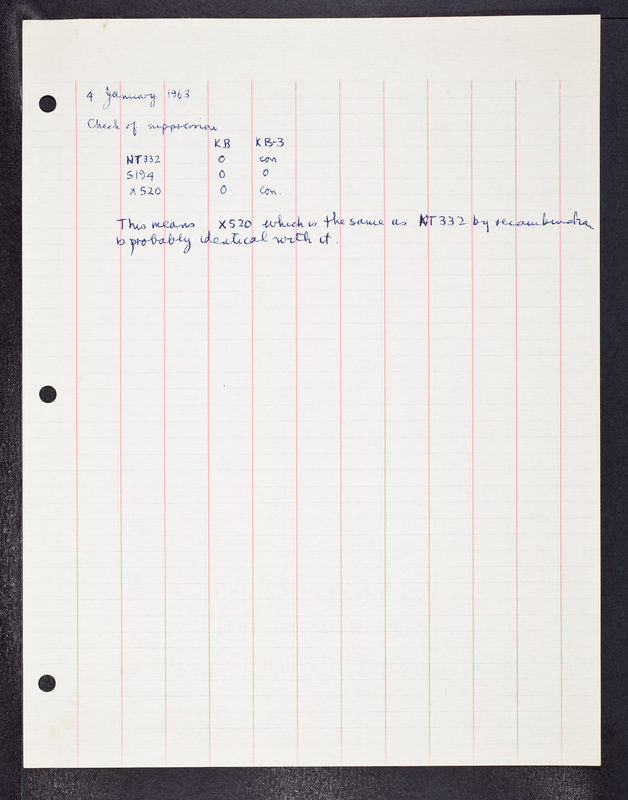 4 January 1963
Check of suppression
KB KB-3
NT332 0 con
S194 0 0
X520 0 con.
This means X520 which is the same as NT332 by recombination
is probably identical with it.